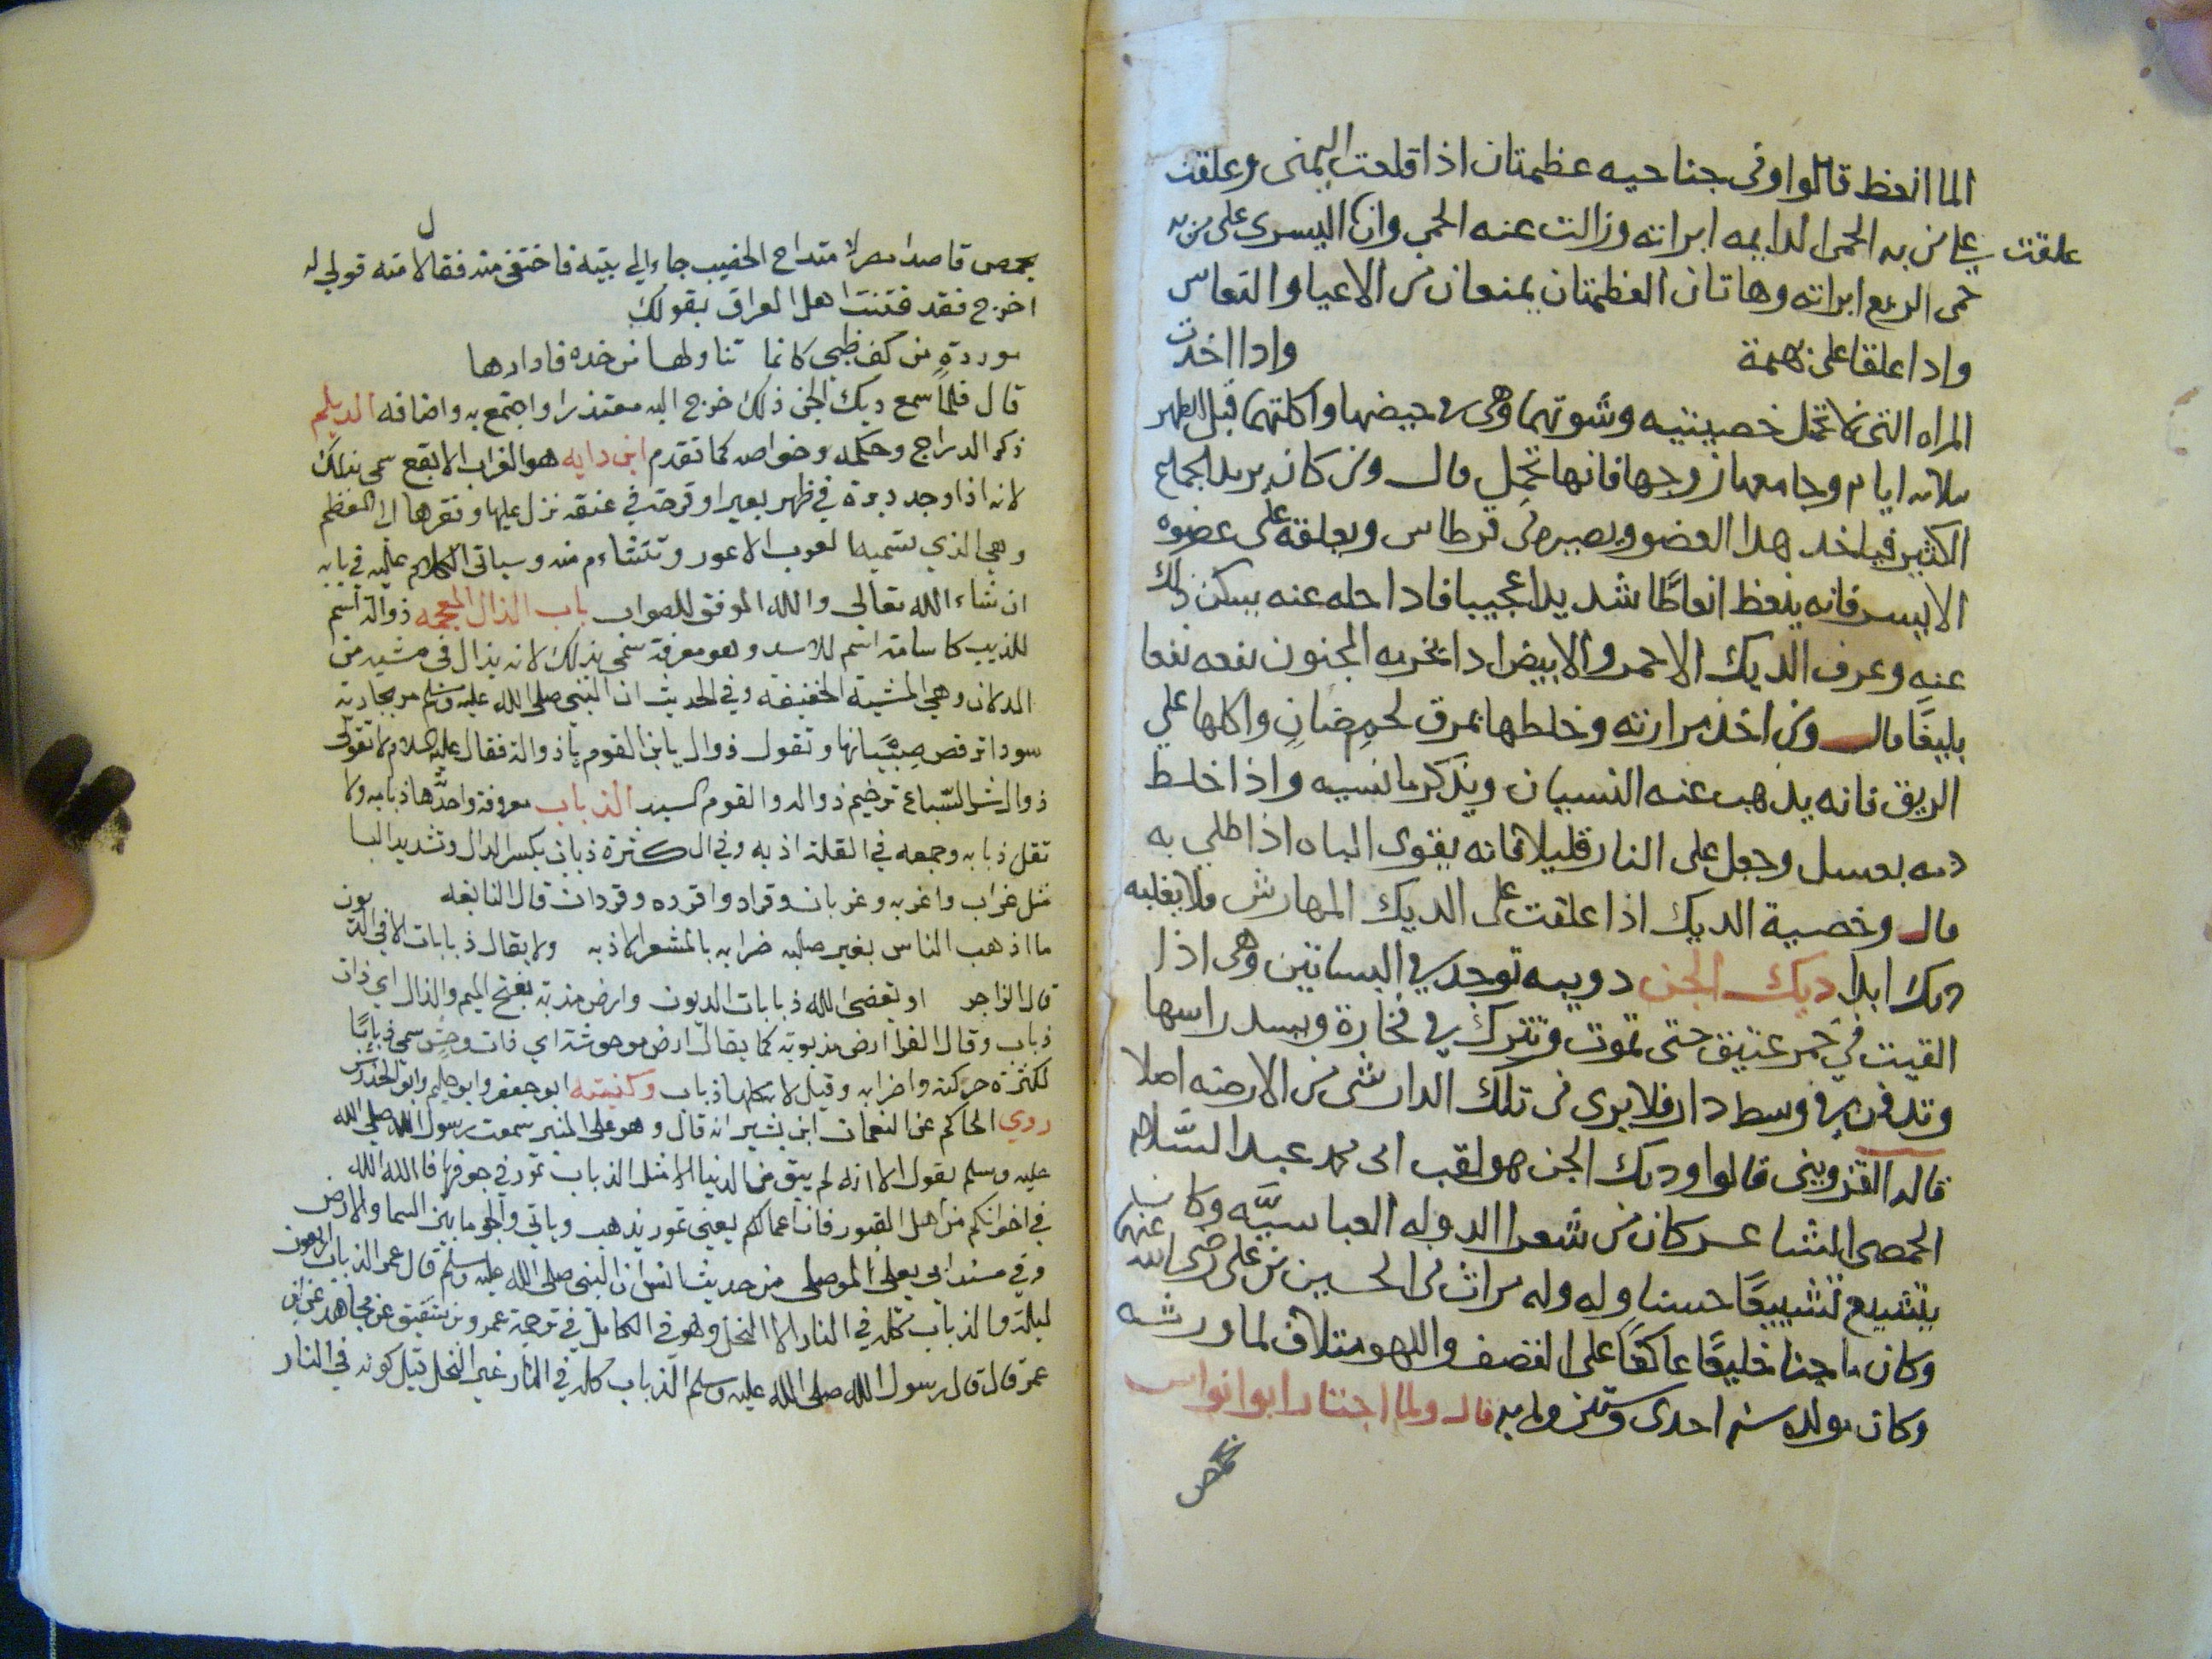 الما انعظ قالوا وفى جناحيه عظمتان اذا قلعت اليمنى وعلقت
علقت على من به الحمى الدايمه ابراته وزالت عنه الحمى وان اليسرى على من به
حمى الربع ابراته وهاتان العظمتان يمنعان من الاعيا والنعاس
واذا علقا على بهيمة واذا اخذت
المراه التى لا تحمل خصيتيه وشوتهما وهى فى حيضها واكلتهما قبل الطهر
بثلاثه ايام وجامعها زوجها فانها تحمل قال ومن كان يريد الجماع
الكثير فياخذ هذا العضو ويصيره فى قرطاس ويعلقه على عضوه
الايسر فانه ينعظ انعاظًا شديدا عجيبا فاذا حله عنه يسكن ذلك
عنه وعرف الديك الاحمر والابيض اذا بخر به المجنون نفعه نفعا
بليغًا قال ومن اخذ مرارته وخلطها بمرق لحم ضان واكلها على
الريق فانه يذهب عنه النسيان ويذكر ما نسيه واذا خلط
دمه بعسل وجعل على النار قليلا فانه يقوى الباه اذا طلى به
قال وخصية الديك اذا علقت على الديك المهارش فلا يغلبه
ديك ابدا ديك الجن دويبه توجد فى البساتين وهى اذا
القيت فى خمر عتيق حتى تموت وتترك فى فخارة ويسد راسها
وتدفن فى وسط دار فلا يرى فى تلك الدار شى من الارضه اصلا
قاله القزوينى قالوا وديك الجن هو لقب ابى محمد عبد السّلام
الحمصى الشاعر كان من شعرا الدوله العباسيّه وكان
يتشيع تشييعًا حسنا وله وله مراث فى الحسين بن على رضى الله عنهما
وكان ماجنا خليعًا عاكفًا على القصف واللهو متلاف لما ورثه
وكان مولده سنه احدى وستين ومايه قال ولما اجتاز ابوا نواس
بحمص
بحمص قاصدا مصر لامتداح الخصيب جاء الي بيته فاختفى منه فقال لامته قولي له
اخرج فقد فتنت اهل العراق بقولك
موردة من كف ظبي كانما تناولها من خده فادارها
قال فلما سمع ديك الجن ذلك خرج اليه معتذرا واجتمع به واضافه الديلم
ذكر الدراج وحكمه وخواصه كما تقدم ابن دايه هو الغراب الابقع سمى بذلك
لانه اذا وجد دبرة في ظهر بعير او قرحة في عنقه نزل عليها ونقرها الى العظم
وهي الذي تسميه العرب الاعور وتتشاءم منه وسياتى الكلام عليه في بابه
ان شاء الله تعالي والله الموفق للصواب باب الذال المعجمه ذوالة اسم
للذيب كاسامة اسم للاسد وهو معرفة سمى بذلك لانه يذال في مشيه من
الدلان وهي المشية الخفيفه وفي الحديث ان النبى صلى الله عليه وسلم مر بجارية
سودا ترقص صبيًا لها وتقول ذوال يا ابن القوم يا ذوالة فقال عليه السلام لا تقولى
ذوال شر السّباع ترخيم ذواله والقوم السيد الذباب معروفة واحدها ذبابه ولا
تقل ذبابه وجمعه في القلة اذبه وفي الكثرة ذبان بكسر الذال وتشديد البا
مثل غراب واغربه وغربان وقراد واقرده وقردان قال النابغه
ما اذهب الناس بغير صليه ضرابه بالمشعر الاذبه ولا يقال ذبابات الا في الديون
قال الراجز او يقضى الله ذبابات الديون وارض مذبة بفتح الميم والذال اي ذات
ذباب وقال الفرا ارض مذبوبة كما يقال ارض موحوشة اي ذات وحش سمى ذبابًا
لكثرة حركته واضرابه وقيل لانه كلما ذب اب وكنيته ابو جعفر وابو حليم وابو الحدرس
روي الحاكم عن النعمان ابن بشير انه قال وهو على المنبر سمعت رسول الله صلى الله
عليه وسلم يقول الا انه لم يبق من الدنيا الا مثل الذباب تمور في جوفها فالله الله
في اخوانكم من اهل القبور فان اعمالكم يعنى تمور تذهب وياتي والجو ما بين السما والارض
وفي مسند ابي يعلى الموصلى من حديث انس ان النبى صلى الله عليه وسلم قال عمر الذباب اربعون
ليلة والذباب كله في النار الا النحل وهو في الكامل في ترجمة عمرو بن شقيق عن مجاهد عن ابن
عمر قال قال رسول الله صلى الله عليه وسلم الذباب كله في النار غير النحل قيل كونه في النار